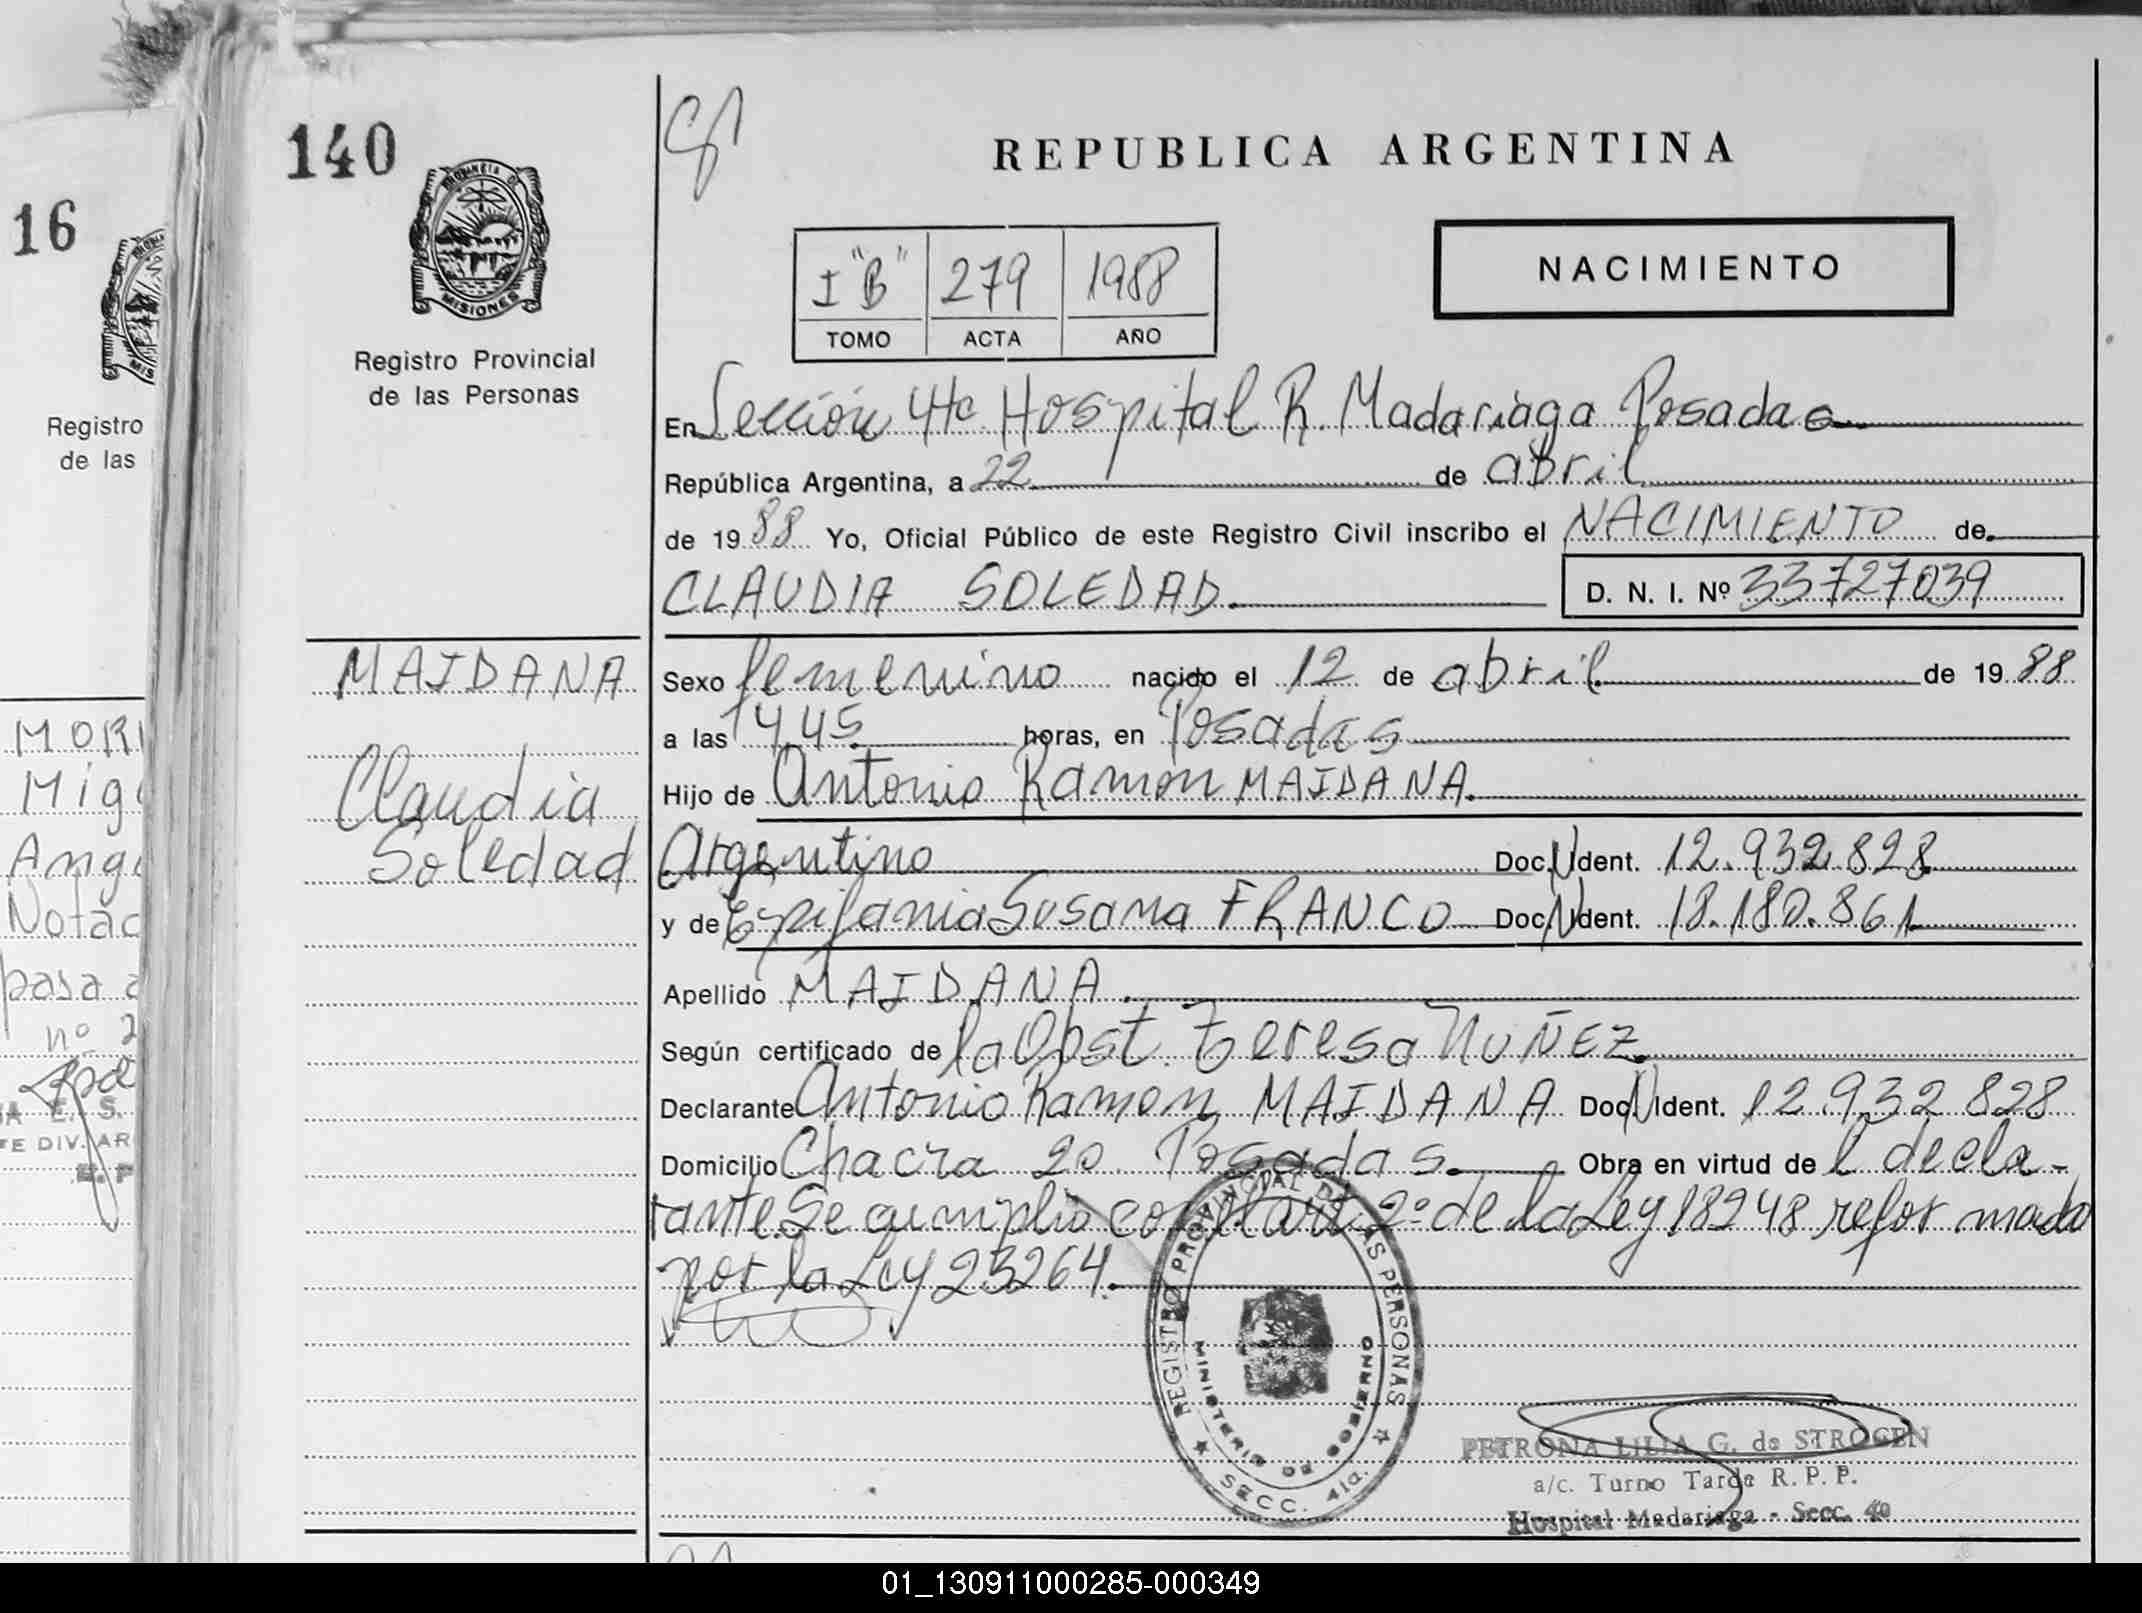 140
PROVINCIA DE
MISIONES
Registro Provincial
de las Personas
MAIDANA
Claudia
Soledad
REPUBLICA ARGENTINA
I "B" 279 1988
TOMO ACTA AÑO
NACIMIENTO
En Sección 4ta. Hospital R. Madariaga Posadas
República Argentina, a 22 de abril
de 1988 Yo, Oficial Público de este Registro Civil inscribo el NACIMIENTO de
CLAUDIA SOLEDAD D. N. I. Nº 33727039
Sexo femenino nacido el 12 de abril de 1988
a las 14,45 horas, en Posadas
Hijo de Antonio Ramon MAIDANA.
Argentino Doc. N Ident. 12.932.828
y de Epifania Susana FRANCO Doc. N Ident. 18.180.861
Apellido MAIDANA
Según certificado de la Obst. Teresa NUÑEZ
Declarante Antonio Ramon MAIDANA Doc. N Ident. 12.932 828
Domicilio Chacra 20 Posadas. Obra en virtud de l decla-
rante. Se cumplio con el art. 2º de la Ley 18248 reformado
por la Ley 23264.
REGISTRO PROVINCIAL DE LAS PERSONAS
MINISTERIO DE GOBIERNO
SECC. 4ta.
PETRONA LILIA G. de STROGEN
a/c. Turno Tarde R. P. P.
Hospital Madariaga - Secc. 4a
16
MIS
Registro
de las
MORI
Mig
Ang
Notac
pasa a
nº 2
E. S.
DIV. AR
01_130911000285-000349